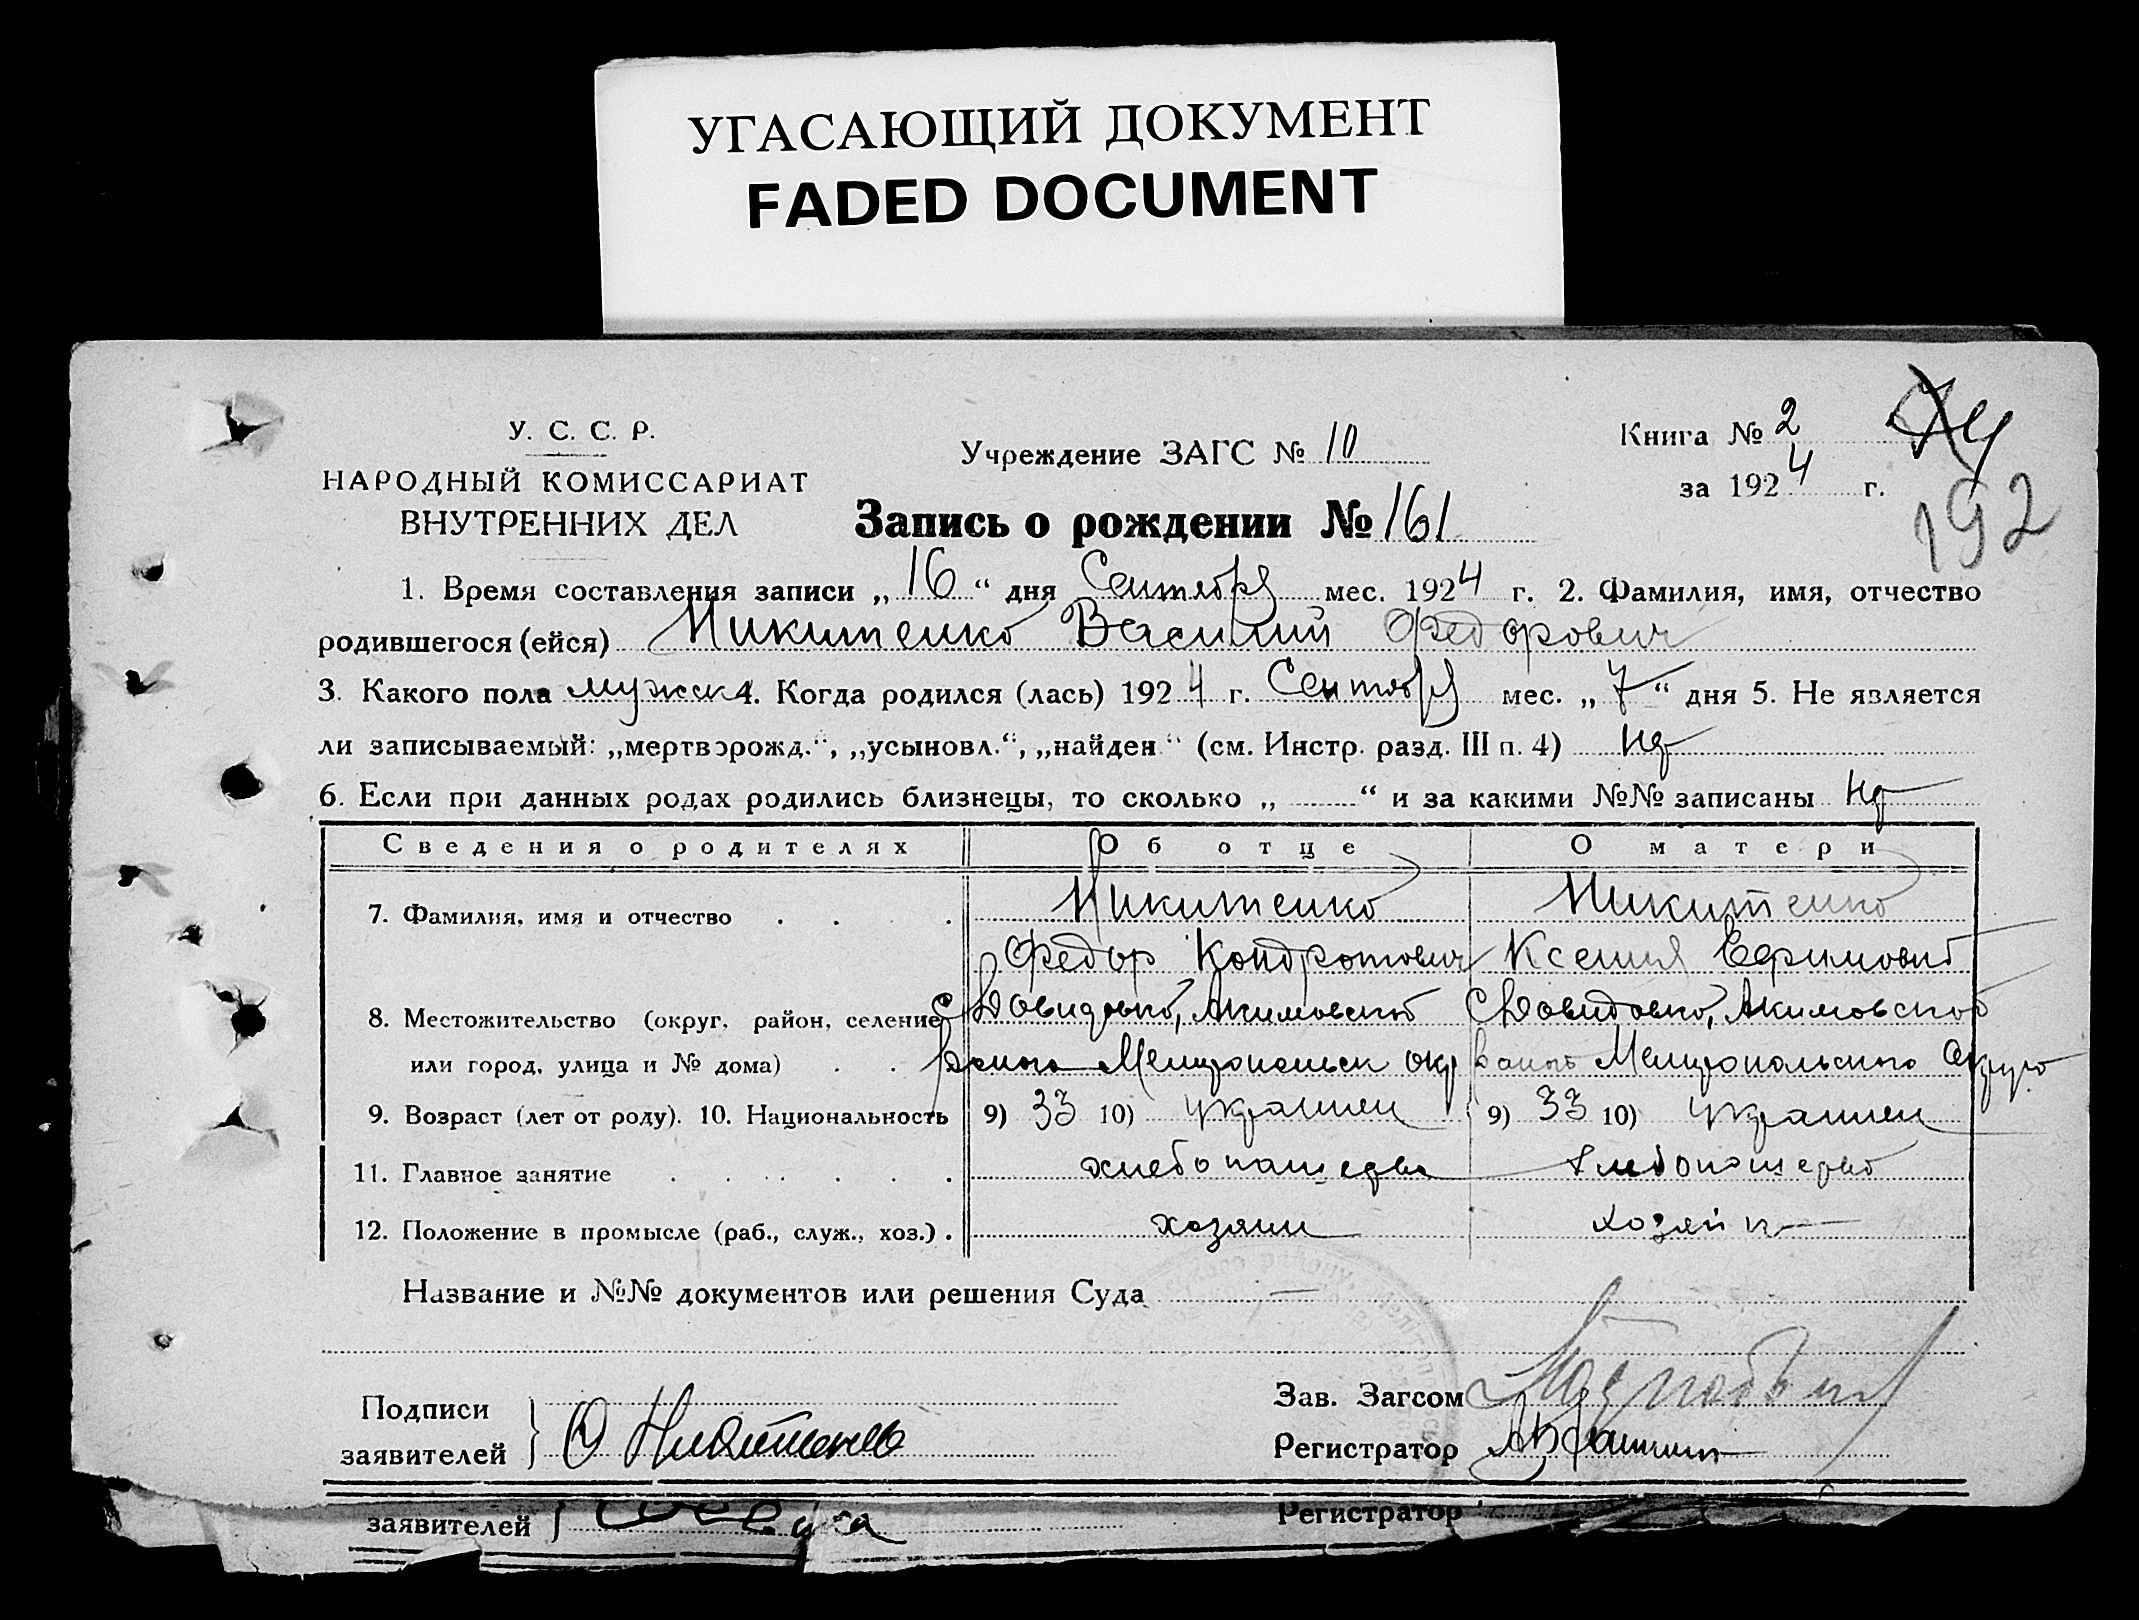 УГАСАЮЩИЙ ДОКУМЕНТ
FADED DOCUMENT
У. С. С. Р.
НАРОДНЫЙ КОМИССАРИАТ
ВНУТРЕННИХ ДЕЛ
Учреждение ЗАГС № 10
Книга № 2
за 1924 г.
192
Запись о рождении № 161
1. Время составления записи „16“ дня Сентября мес. 1924 г. 2. Фамилия, имя, отчество
родившегося (ейся) Никитенко Василий Федорович
3. Какого пола мужск 4. Когда родился (лась) 1924 г. Сентября мес. „7“ дня 5. Не является
ли записываемый: „мертворожд.“, „усыновл.“, „найден“ (см. Инстр. разд. III п. 4)
6. Если при данных родах родились близнецы, то сколько „ “ и за какими №№ записаны
Сведения о родителях Об отце О матери
7. Фамилия, имя и отчество Никитенко Никитенко
Федор Кондратович Ксения Ефимовна
8. Местожительство (округ, район, селение С Давидовка, Акимовской С Давидовка, Акимовской
или город, улица и № дома) Мелитопольск окр Мелитопольского Округа
9. Возраст (лет от роду). 10. Национальность 9) 33 10) украинец 9) 33 10) украинец
11. Главное занятие хлебопашество хлебопашество
12. Положение в промысле (раб., служ., хоз.) хозяин хозяйк
Название и №№ документов или решения Суда —
Подписи
заявителей Ф Никитенко
Зав. Загсом
Регистратор
заявителей
Регистратор